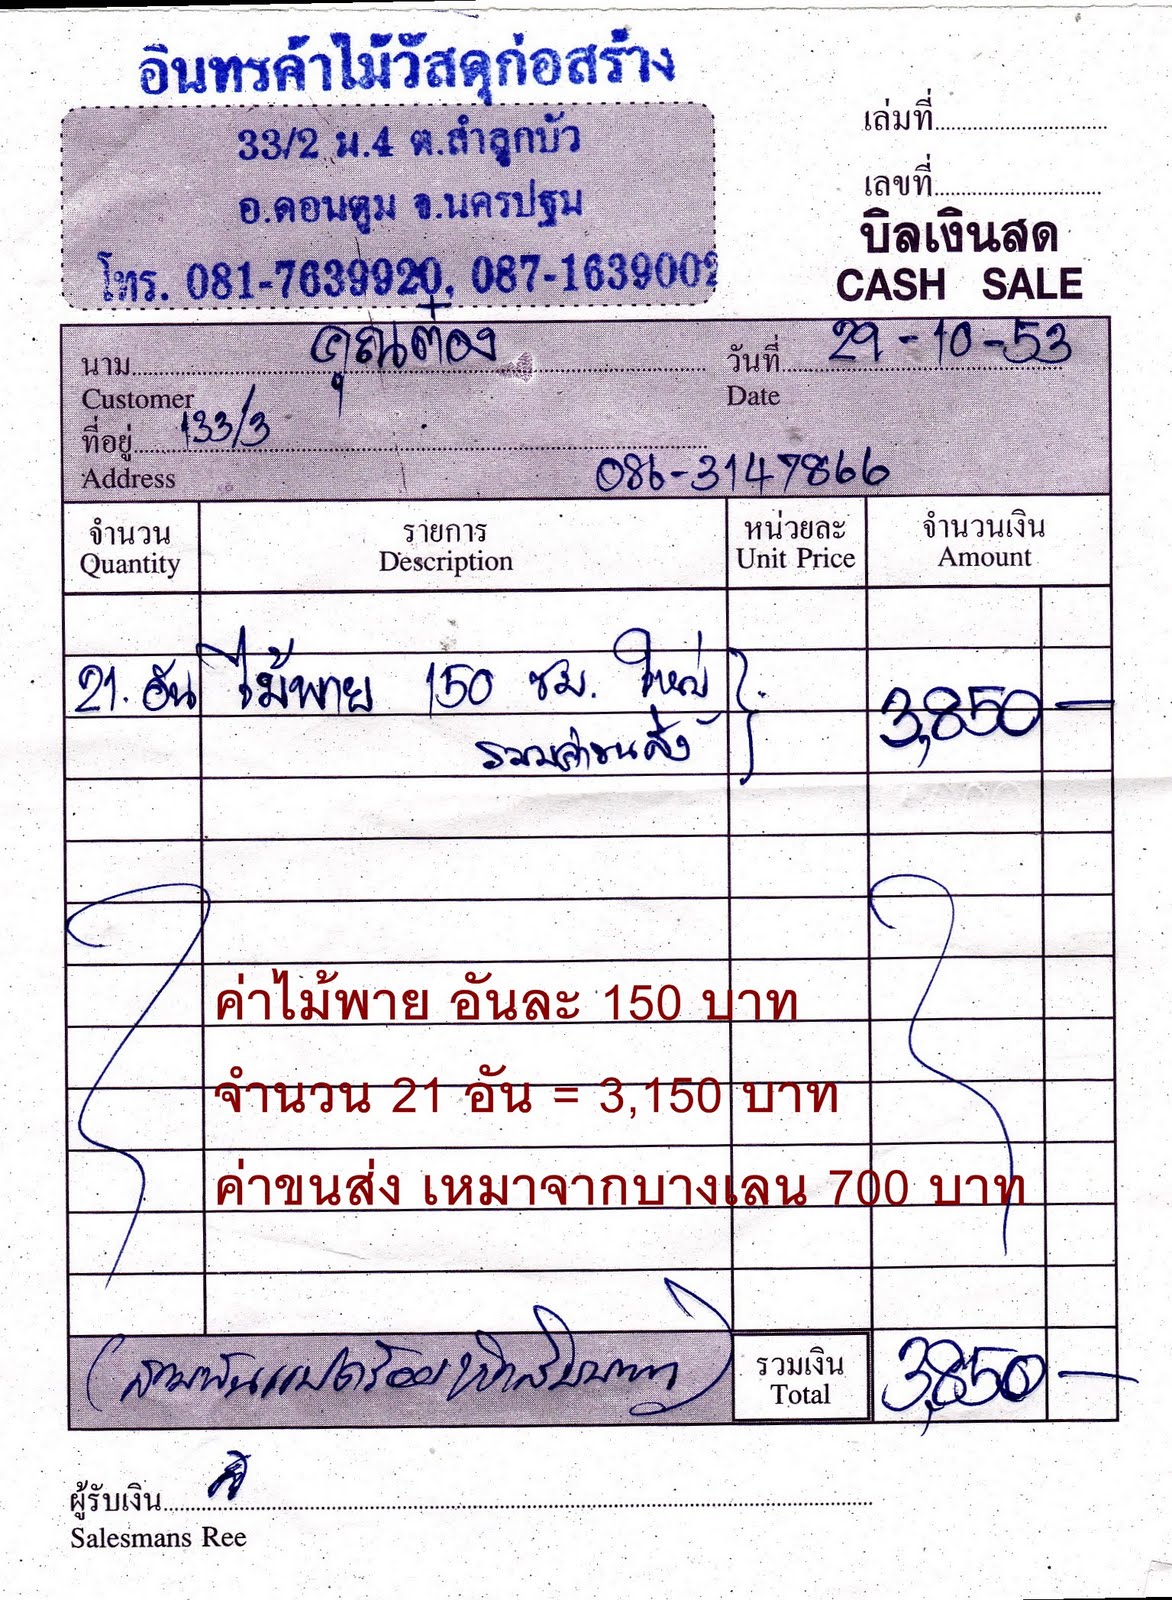 อินทรค้าไม้วัสดุก่อสร้าง
33/2 ม.4 ต.ลำลูกบัว
อ.ดอนตูม จ.นครปฐม
โทร. 081-7639920, 087-1639002
เล่มที่
เลขที่
บิลเงินสด
CASH SALE
นาม คุณต๋อง
Customer
วันที่ 29-10-53
Date
ที่อยู่ 133/3
Address
086-3147866
จำนวน รายการ หน่วยละ จำนวนเงิน
Quantity Description Unit Price Amount
21. อัน ไม้พาย 150 ซม. ใหญ่ 3,850 —
รวมค่าขนส่ง
ค่าไม้พาย อันละ 150 บาท
จำนวน 21 อัน = 3,150 บาท
ค่าขนส่ง เหมาจากบางเลน 700 บาท
(สามพันแปดร้อยห้าสิบบาท) รวมเงิน 3,850 —
Total
ผู้รับเงิน
Salesmans Ree